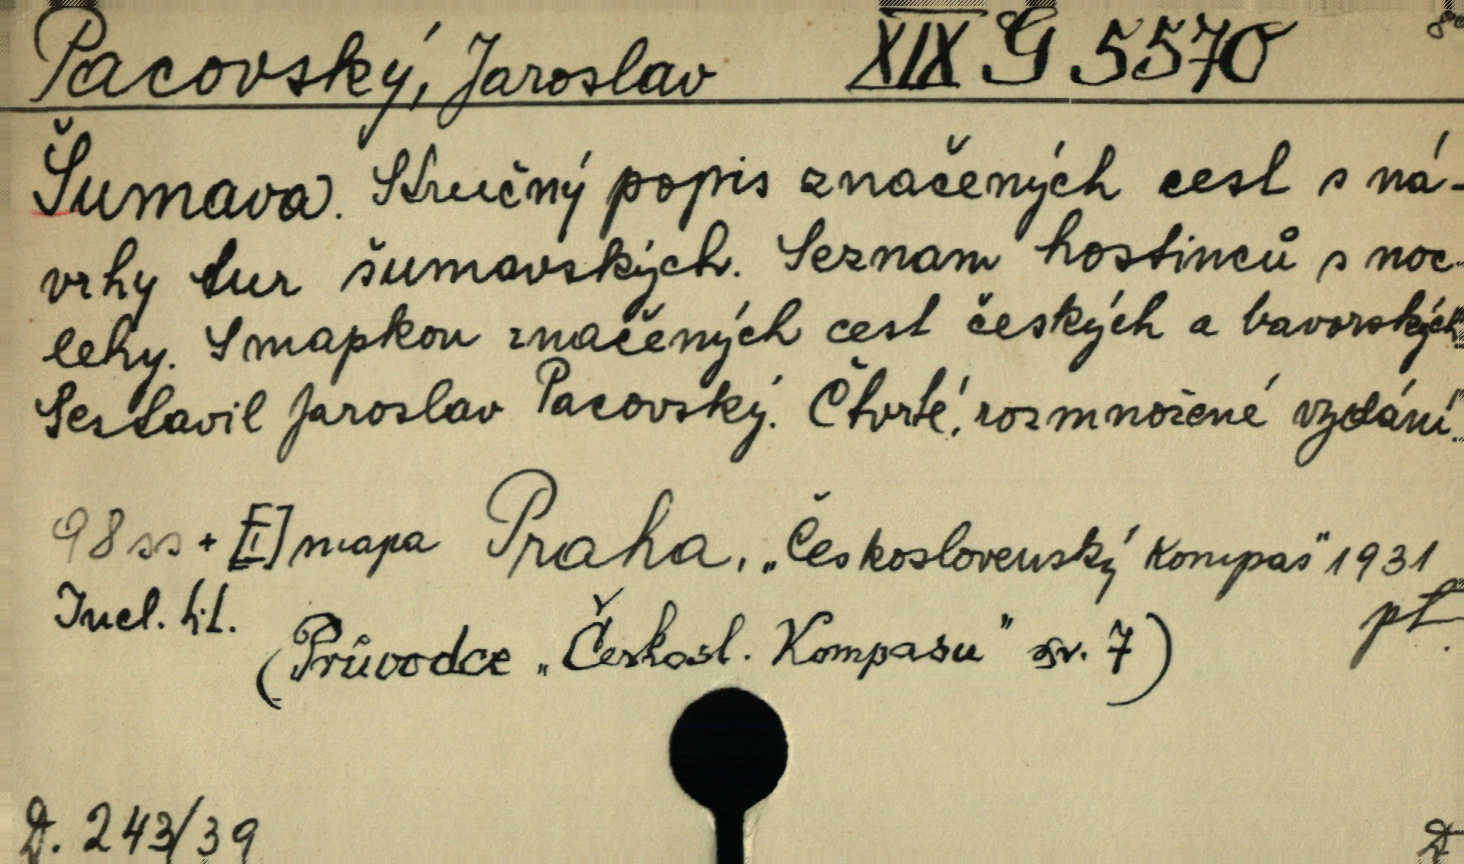 Pacovský, Jaroslav XIX G 5570 8°
Šumava. Stručný popis značených cest s ná-
vrhy tur šumavských. Seznam hostinců s noc-
lehy. S mapkou značených cest českých a bavorských.
Sestavil Jaroslav Pacovský. Čtvrté, rozmnožené vydání.
98 ss + [I] mapa Praha, „Československý Kompas" 1931
Incl. tit. pt.
(Průvodce „Českosl. Kompasu" sv. 7)
D. 243/39 D